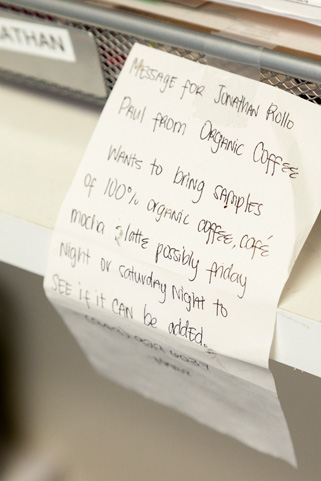 NATHAN
MESSAGE FOR JONATHAN ROLLO
PAUL FROM ORGANIC COFFEE
WANTS to bring SAMPLES
OF 100% organic coffee, café
mocha & latte possibly friday
Night or saturday Night to
SEE if it CAN be added.